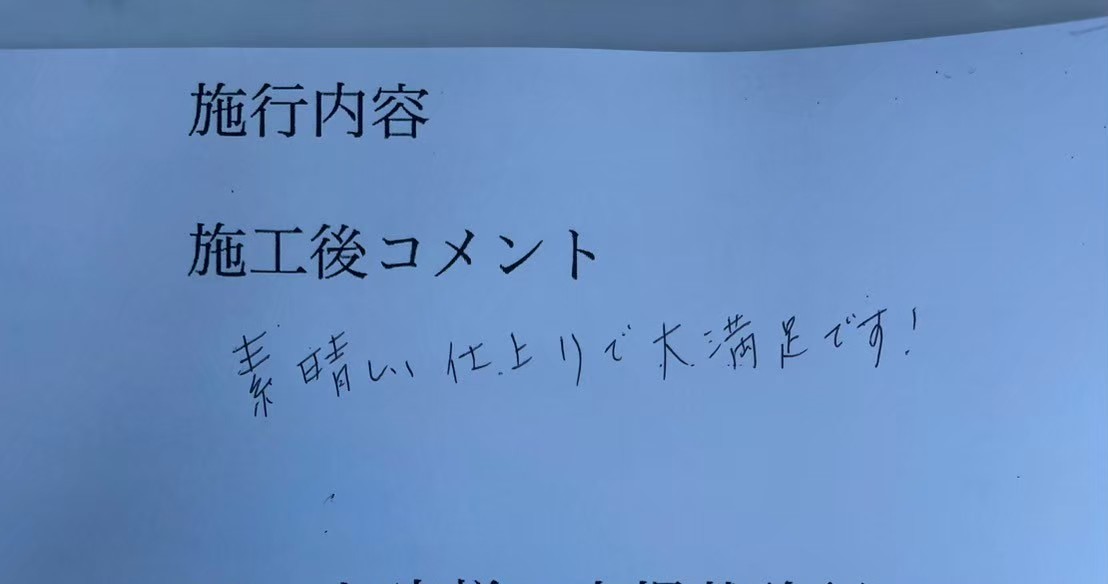 施行内容
施工後コメント
素晴しい仕上りで大満足です!